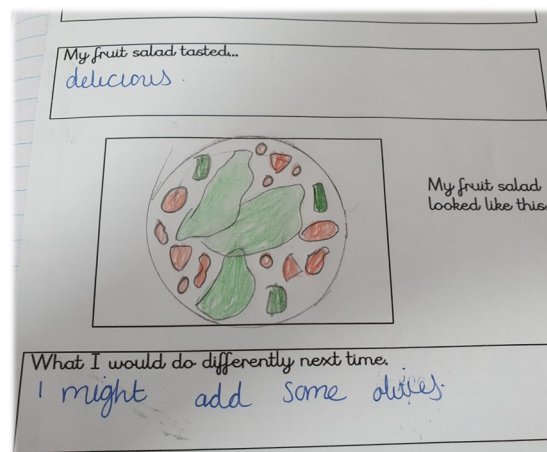 My fruit salad tasted...
delicious.
My fruit salad
looked like this
What I would do differently next time.
I might add some olives.